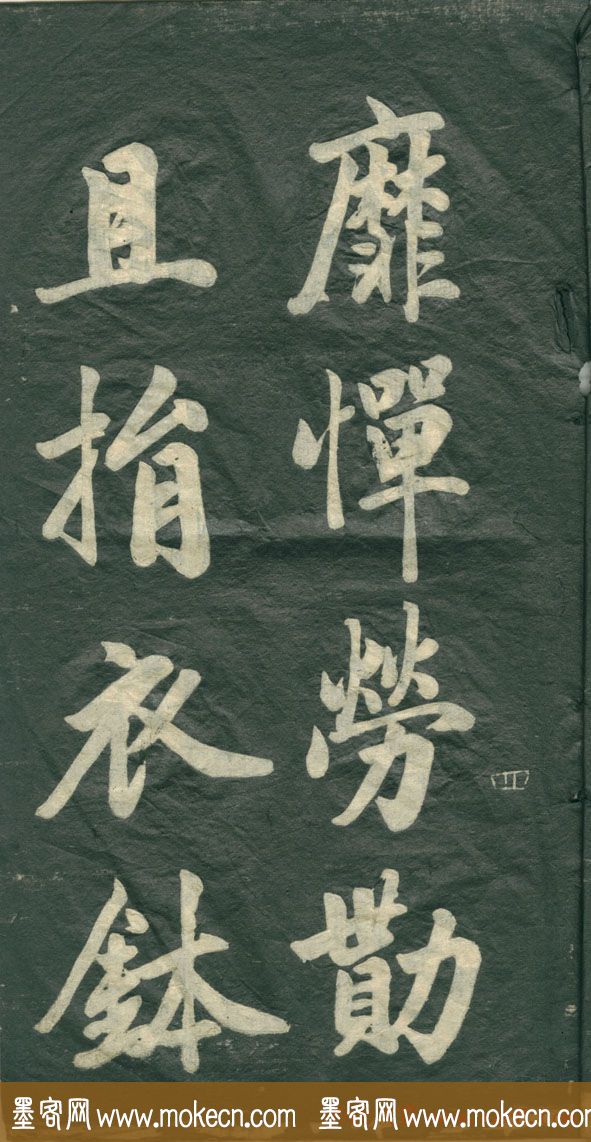 靡憚勞勩
且捐衣鉢
四
墨客网 www.mokecn.com 墨客网 www.mokecn.com